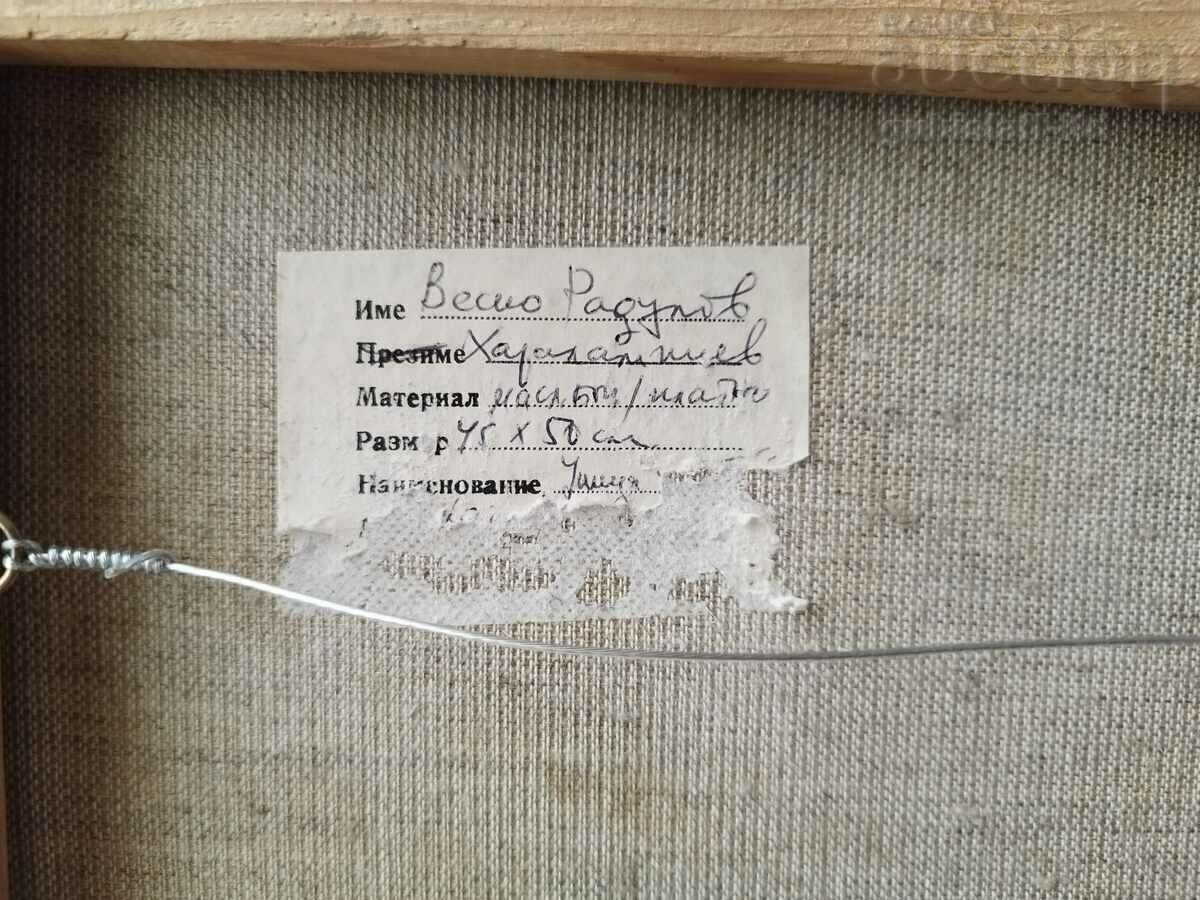 auction
Име Веско Радулов
Презиме Харалампиев
Материал маслени/платно
Разм р 45 x 50 см
Наименование Улица